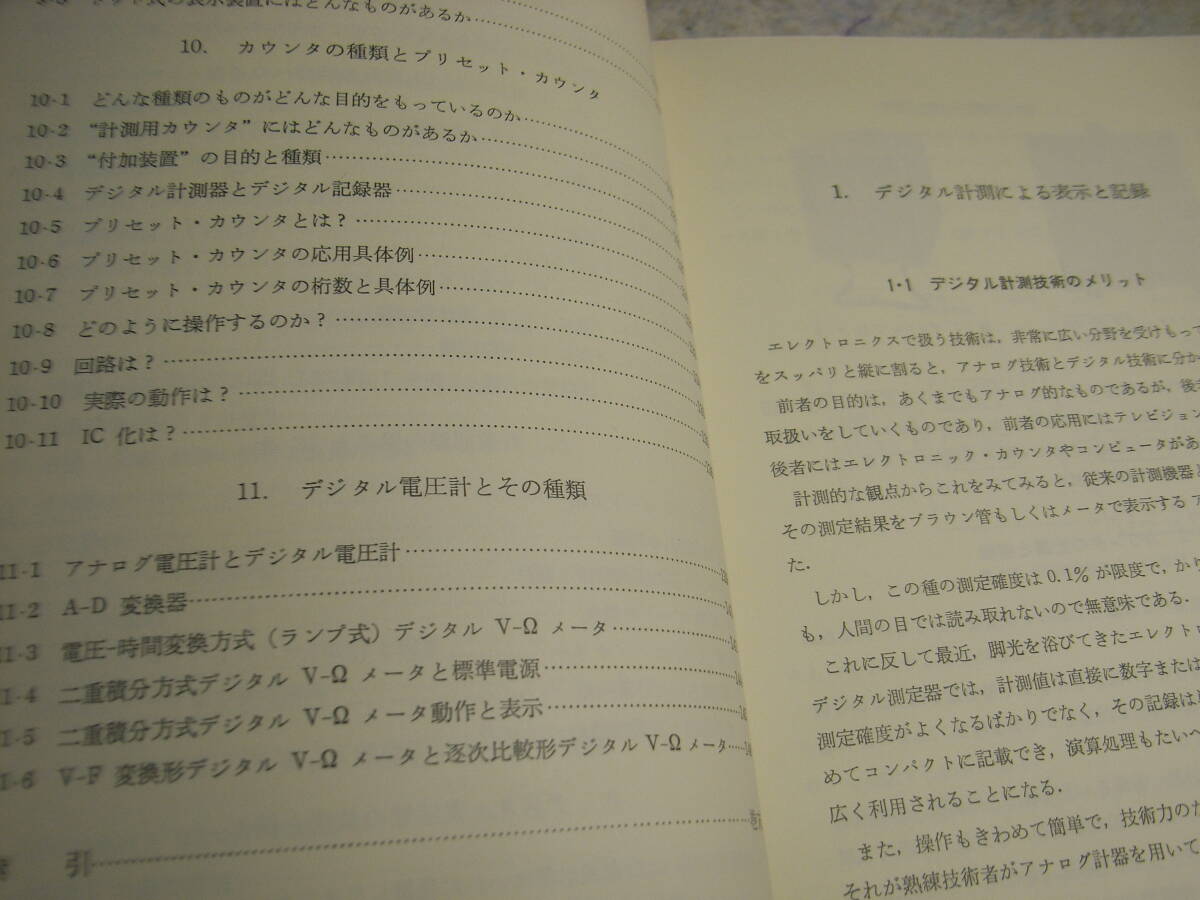 ドット式の表示装置にはどんなものがあるか
10. カウンタの種類とプリセット・カウンタ
10-1 どんな種類のものがどんな目的をもっているのか
10-2 “計測用カウンタ”にはどんなものがあるか
10-3 “付加装置”の目的と種類
10-4 デジタル計測器とデジタル記録器
10-5 プリセット・カウンタとは?
10-6 プリセット・カウンタの応用具体例
10-7 プリセット・カウンタの桁数と具体例
10-8 どのように操作するのか?
10-9 回路は?
10-10 実際の動作は?
10-11 IC 化は?
11. デジタル電圧計とその種類
11-1 アナログ電圧計とデジタル電圧計
11-2 A-D 変換器
11-3 電圧-時間変換方式(ランプ式)デジタル V-Ω メータ
11-4 二重積分方式デジタル V-Ω メータと標準電源
11-5 二重積分方式デジタル V-Ω メータ動作と表示
11-6 V-F 変換形デジタル V-Ω メータと逐次比較形デジタル V-Ω メータ
引
1. デジタル計測による表示と記録
1・1 デジタル計測技術のメリット
エレクトロニクスで扱う技術は,非常に広い分野を受けもって
をスッパリと縦に割ると,アナログ技術とデジタル技術に分か
前者の目的は,あくまでもアナログ的なものであるが,後者
取扱いをしていくものであり,前者の応用にはテレビジョン
後者にはエレクトロニック・カウンタやコンピュータがあ
計測的な観点からこれをみてみると,従来の計測機器と
その測定結果をブラウン管もしくはメータで表示するア
た.
しかし,この種の測定確度は0.1%が限度で,かり
も,人間の目では読み取れないので無意味である.
これに反して最近,脚光を浴びてきたエレクトロ
デジタル測定器では,計測値は直接に数字または
測定確度がよくなるばかりでなく,その記録は
めてコンパクトに記載でき,演算処理もたいへ
広く利用されることになる.
また,操作もきわめて簡単で,技術力のた
それが熟練技術者がアナログ計器を用いて